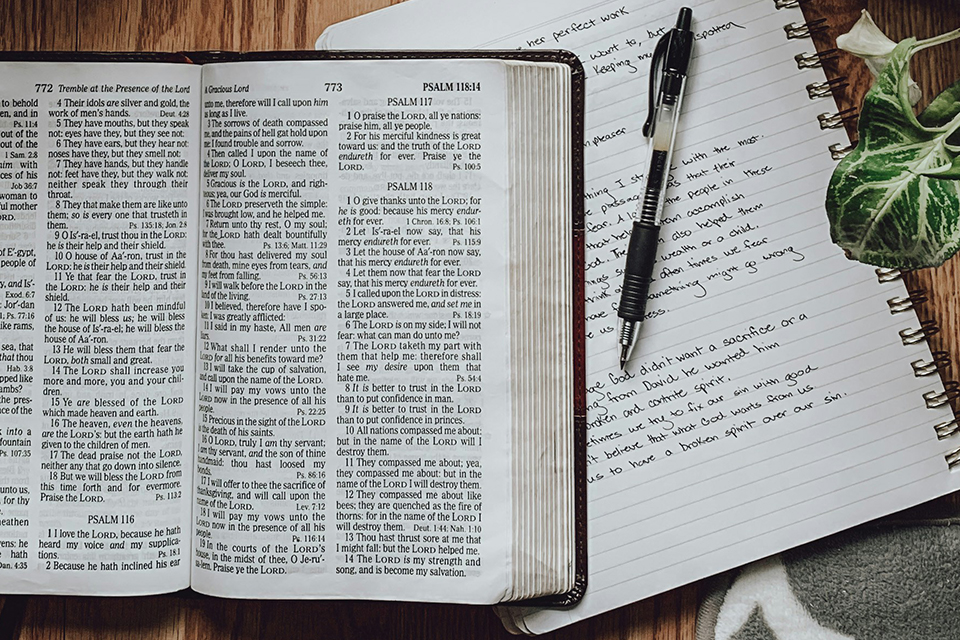 772 Tremble at the Presence of the Lord
to behold
en, and in
Ps. 11:4
out of the
out of the
1 Sam. 2:8
him with
ces of his
Job 36:7
woman to
ful mother
ORD.
of E'-gypt,
people of
y, and Is'-
Exod. 6:7
Jor'-dan
1; Ps. 77:16
like rams,
sea, that
that thou
Hab. 3:8
ipped like
ambs?
the pres-
ce of the
k into a
fountain
Ps. 107:35
unto us,
for thy
heathen
ens: he
hath
Dan. 4:35
4 Their idols are silver and gold, the
work of men's hands. Deut. 4:28
5 They have mouths, but they speak
not: eyes have they, but they see not:
6 They have ears, but they hear not:
noses have they, but they smell not:
7 They have hands, but they handle
not: feet have they, but they walk not:
neither speak they through their
throat.
8 They that make them are like unto
them; so is every one that trusteth in
them. Ps. 135:18; Jon. 2:8
9 O Is'-ra-el, trust thou in the LORD:
he is their help and their shield.
10 O house of Aa'-ron, trust in the
LORD: he is their help and their shield.
11 Ye that fear the LORD, trust in
the LORD: he is their help and their
shield.
12 The LORD hath been mindful
of us: he will bless us; he will bless
the house of Is'-ra-el; he will bless the
house of Aa'-ron.
13 He will bless them that fear the
LORD, both small and great.
14 The LORD shall increase you
more and more, you and your chil-
dren.
15 Ye are blessed of the LORD
which made heaven and earth.
16 The heaven, even the heavens,
are the LORD's: but the earth hath he
given to the children of men.
17 The dead praise not the LORD,
neither any that go down into silence.
18 But we will bless the LORD from
this time forth and for evermore.
Praise the LORD. Ps. 113:2
PSALM 116
1 I love the LORD, because he hath
heard my voice and my supplica-
tions. Ps. 18:1
2 Because he hath inclined his ear
A Gracious Lord 773 PSALM 118:14
unto me, therefore will I call upon him
as long as I live.
3 The sorrows of death compassed
me, and the pains of hell gat hold upon
me: I found trouble and sorrow.
4 Then called I upon the name of
the LORD; O LORD, I beseech thee,
deliver my soul.
5 Gracious is the LORD, and righ-
teous; yea, our God is merciful.
6 The LORD preserveth the simple:
I was brought low, and he helped me.
7 Return unto thy rest, O my soul;
for the LORD hath dealt bountifully
with thee. Ps. 13:6; Matt. 11:29
8 For thou hast delivered my soul
from death, mine eyes from tears, and
my feet from falling. Ps. 56:13
9 I will walk before the LORD in the
land of the living. Ps. 27:13
10 I believed, therefore have I spo-
ken: I was greatly afflicted:
11 I said in my haste, All men are
liars. Ps. 31:22
12 What shall I render unto the
LORD for all his benefits toward me?
13 I will take the cup of salvation,
and call upon the name of the LORD.
14 I will pay my vows unto the
LORD now in the presence of all his
people. Ps. 22:25
15 Precious in the sight of the LORD
is the death of his saints.
16 O LORD, truly I am thy servant;
I am thy servant, and the son of thine
handmaid: thou hast loosed my
bonds. Ps. 86:16
17 I will offer to thee the sacrifice of
thanksgiving, and will call upon the
name of the LORD. Lev. 7:12
18 I will pay my vows unto the
LORD now in the presence of all his
people. Ps. 116:14
19 In the courts of the LORD's
house, in the midst of thee, O Je-ru'-
sa-lem. Praise ye the LORD.
PSALM 117
1 O praise the LORD, all ye nations:
praise him, all ye people.
2 For his merciful kindness is great
toward us: and the truth of the LORD
endureth for ever. Praise ye the
LORD. Ps. 100:5
PSALM 118
1 O give thanks unto the LORD; for
he is good: because his mercy endur-
eth for ever. 1 Chron. 16:8; Ps. 106:1
2 Let Is'-ra-el now say, that his
mercy endureth for ever. Ps. 115:9
3 Let the house of Aa'-ron now say,
that his mercy endureth for ever.
4 Let them now that fear the LORD
say, that his mercy endureth for ever.
5 I called upon the LORD in distress:
the LORD answered me, and set me in
a large place. Ps. 18:19
6 The LORD is on my side; I will not
fear: what can man do unto me?
7 The LORD taketh my part with
them that help me: therefore shall
I see my desire upon them that
hate me. Ps. 54:4
8 It is better to trust in the LORD
than to put confidence in man.
9 It is better to trust in the LORD
than to put confidence in princes.
10 All nations compassed me about:
but in the name of the LORD will I
destroy them.
11 They compassed me about; yea,
they compassed me about: but in the
name of the LORD I will destroy them.
12 They compassed me about like
bees; they are quenched as the fire of
thorns: for in the name of the LORD I
will destroy them. Deut. 1:44; Nah. 1:10
13 Thou hast thrust sore at me that
I might fall: but the LORD helped me.
14 The LORD is my strength and
song, and is become my salvation.
her perfect work
want to, but
keeping my spotted
pleaser
thing I st with the most.
pleasing as that their
fear. All the people in these
that help accomplish
Things su also helped them
wealth or a child.
often times we fear
something might go wrong
us stress.
God didn't want a sacrifice or a
ing from David he wanted him
broken and contrite spirit.
times we try to fix our sin with good
t believe that what God wants from us.
us to have a broken spirit over our sin.